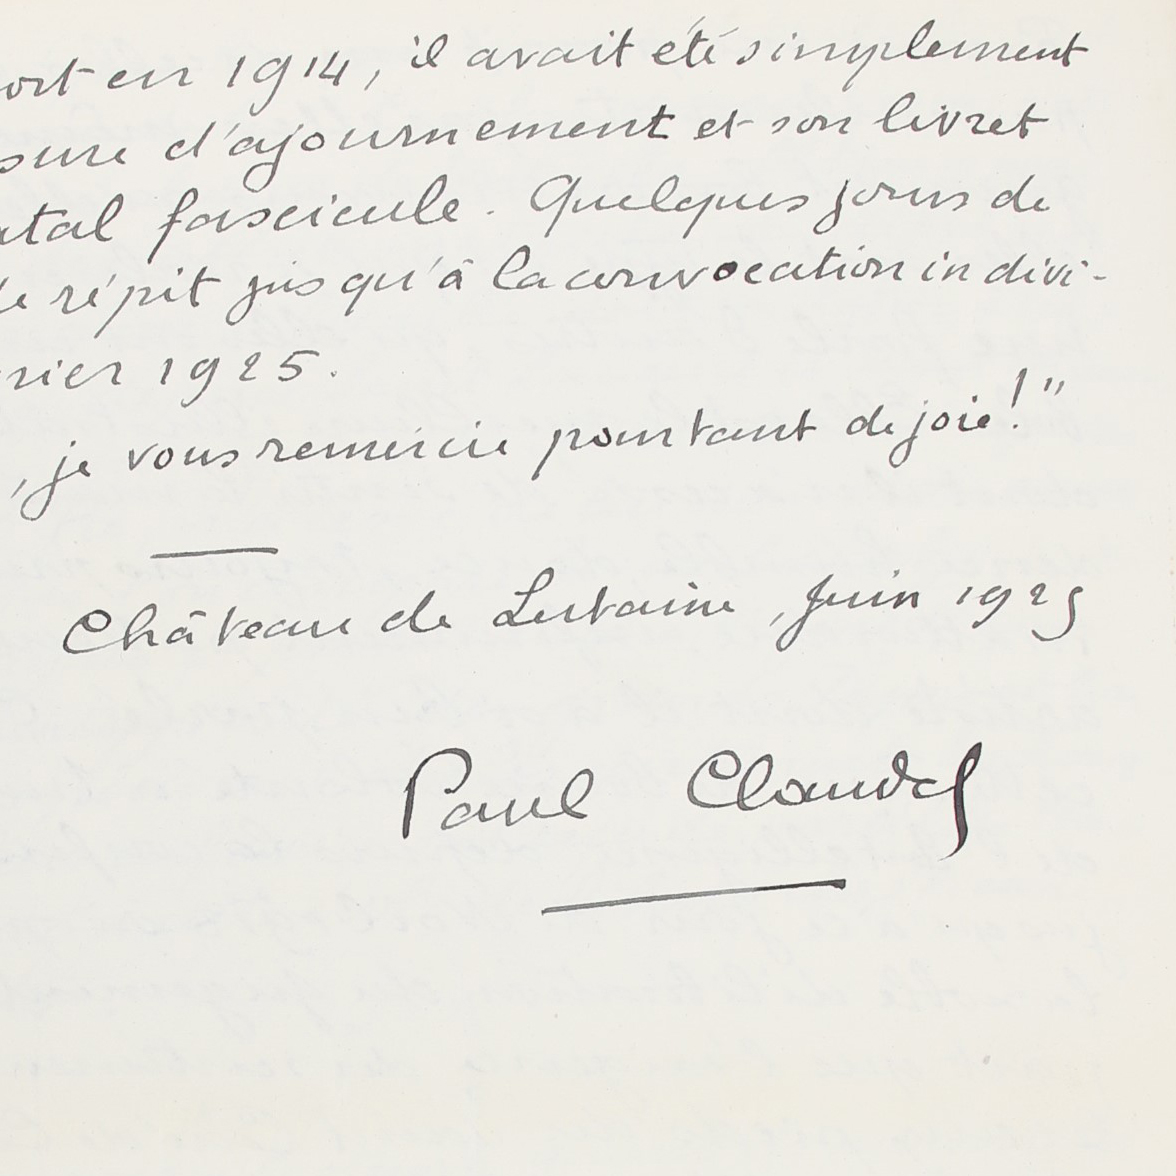 ort en 1914, il avait été simplement
sure d'ajournement et son livret
atal fascicule. Quelques jours de
de répit jusqu'à la convocation indivi-
rier 1925.
, je vous remercie pourtant de joie !"
Château de Lutaine, Juin 1925
Paul Claudel